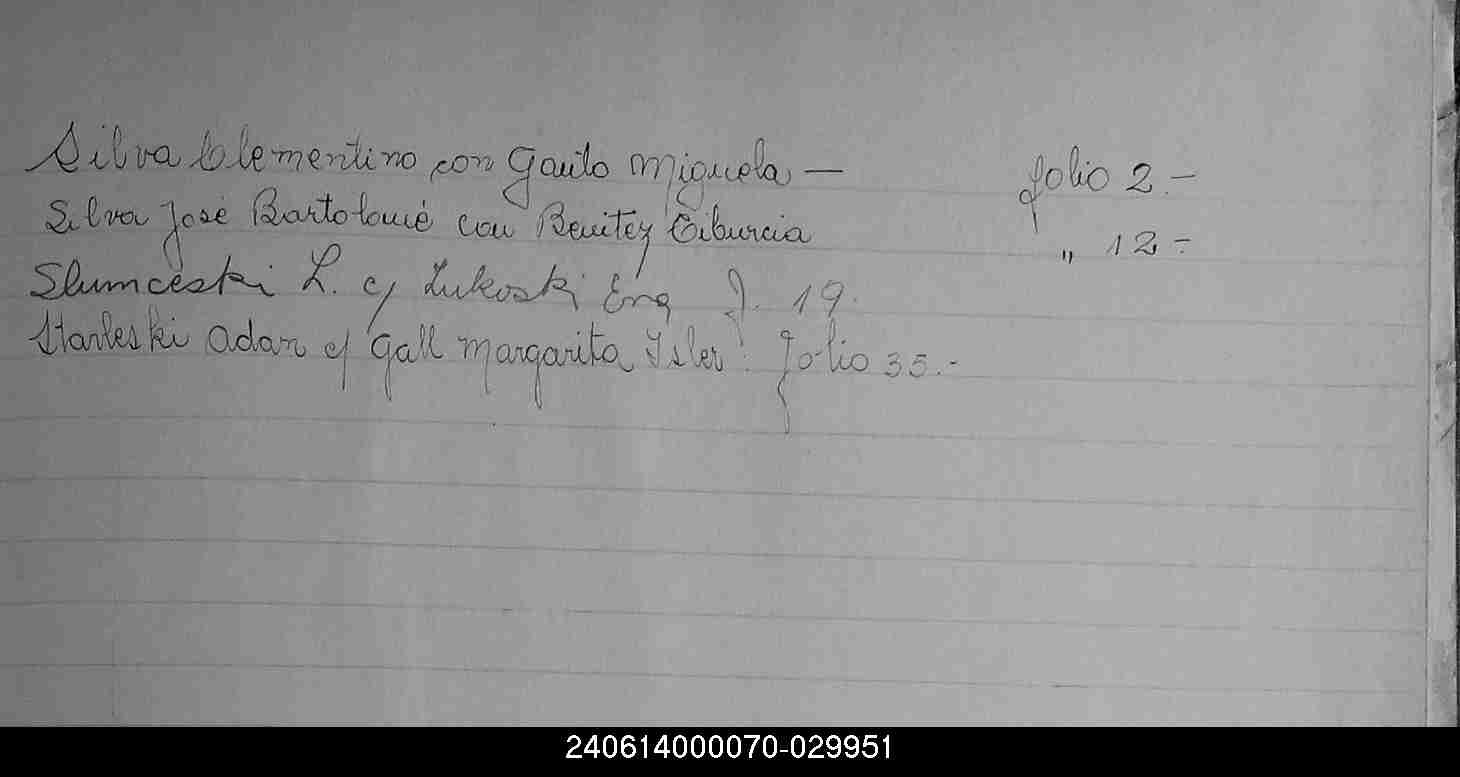 Silva Clementino con Gauto Miguela — folio 2.-
Silva José Bartolomé con Benitez Tiburcia „ 12-
Slumceski L. c/ Lukoski Eng f. 19.
Starleski Adan c/ Gall Margarita Isler. folio 35.-
240614000070-029951